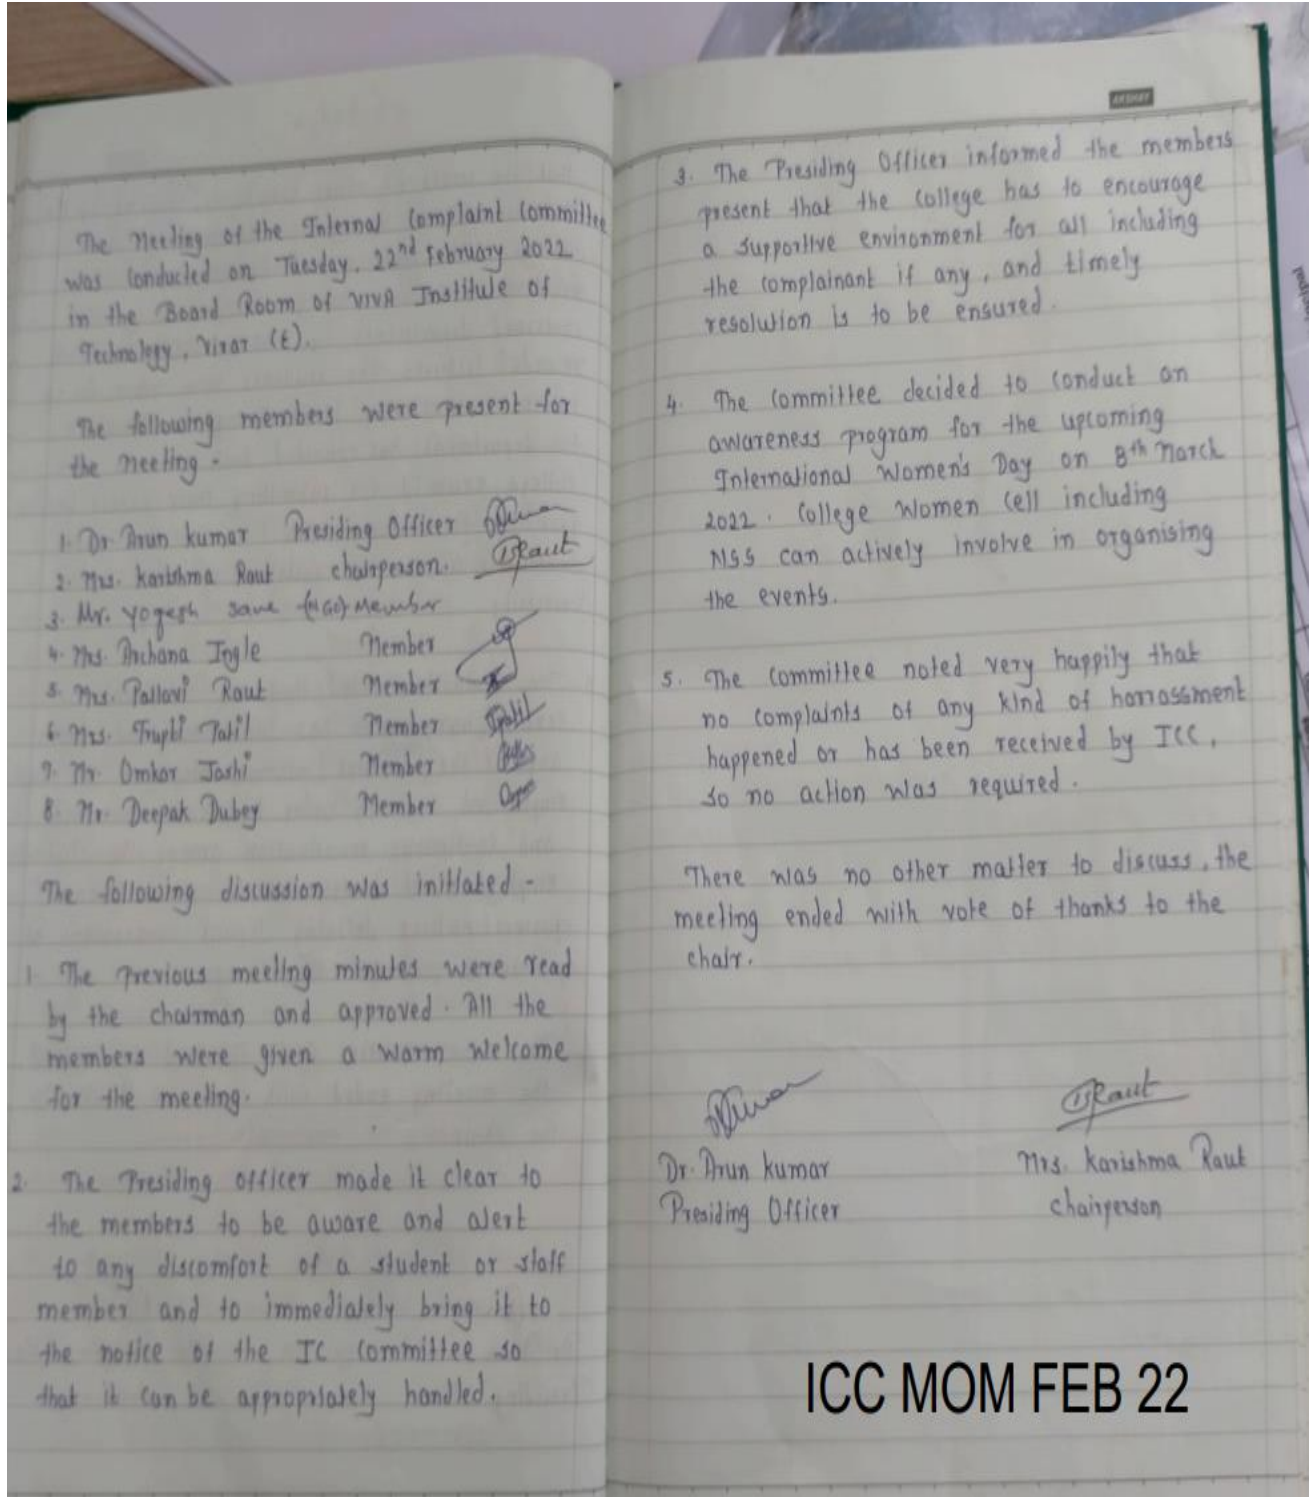 The Meeting of the Internal Complaint Committee
was conducted on Tuesday, 22nd February 2022
in the Board Room of VIVA Institute of
Technology, Virar (E).
The following members were present for
the Meeting -
1. Dr. Arun Kumar Presiding Officer
2. Mrs. Karishma Raut chairperson.
3. Mr. Yogesh Save (NGO) Member
4. Mrs. Archana Ingle Member
5. Mrs. Pallavi Raut Member
6. Mrs. Trupti Patil Member
7. Mr. Omkar Joshi Member
8. Mr. Deepak Dubey Member
The following discussion was initiated -
1 The previous meeting minutes were read
by the chairman and approved. All the
members were given a warm welcome
for the meeting.
2. The Presiding officer made it clear to
the members to be aware and alert
to any discomfort of a student or staff
member and to immediately bring it to
the notice of the IC Committee so
that it can be appropriately handled.
AKSHAY
3. The Presiding Officer informed the members
present that the college has to encourage
a supportive environment for all including
the complainant if any, and timely
resolution is to be ensured.
4. The Committee decided to conduct an
awareness program for the upcoming
International Women's Day on 8th March
2022. College Women Cell including
NSS can actively involve in organising
the events.
5. The Committee noted very happily that
no complaints of any kind of harrassment
happened or has been received by ICC,
so no action was required.
There was no other matter to discuss, the
meeting ended with vote of thanks to the
chair.
Dr. Arun Kumar Mrs. Karishma Raut
Presiding Officer chairperson
ICC MOM FEB 22